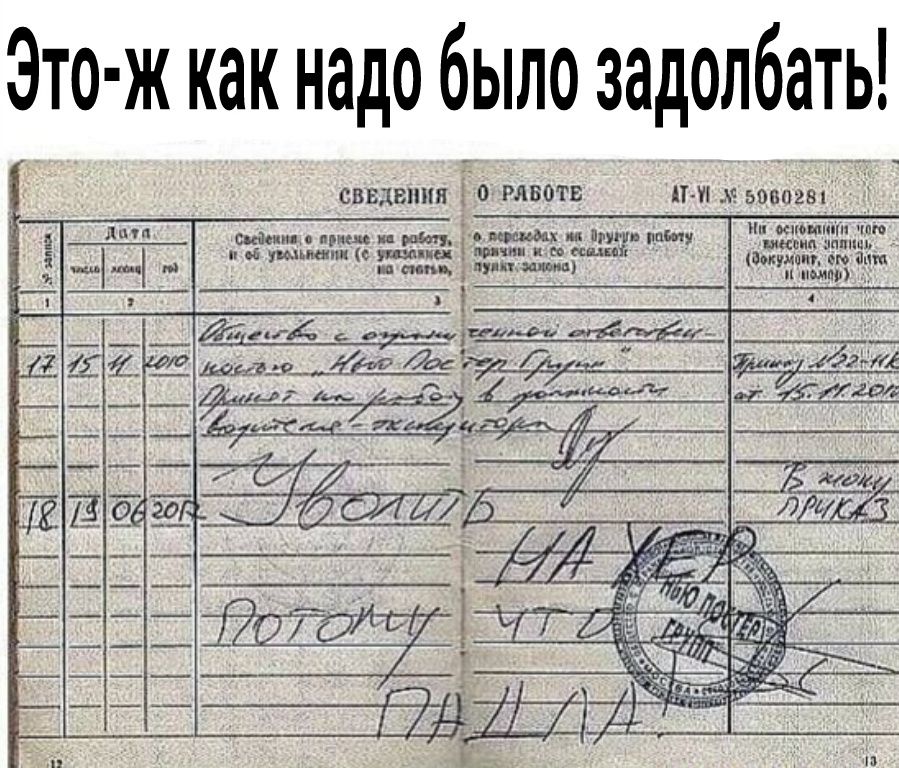 Это-ж как надо было задолбать!
СВЕДЕНИЯ О РАБОТЕ АТ-VI № 5960281
№ записи
Дата
Сведения о приеме на работу, о переводах на другую работу
и об увольнении (с указанием причин и со ссылкой
на статью, пункт закона)
На основании чего
внесена запись
(документ, его дата
и номер)
число месяц год
1 2 3 4
Общество с ограниченной ответствен-
17 15 11 2010 ностью „Нью Постер Групп" Приказ №22-НК
Принят на работу в должности от 15.11.2010
водителя-экспедитора
В жопу
18 19 06 2012 Уволить ПРИКАЗ
НА ХЕР
Потому ЧТО
ПАДЛА.
НЬЮ ПОСТЕР
ГРУПП
МОСКВА
12 13